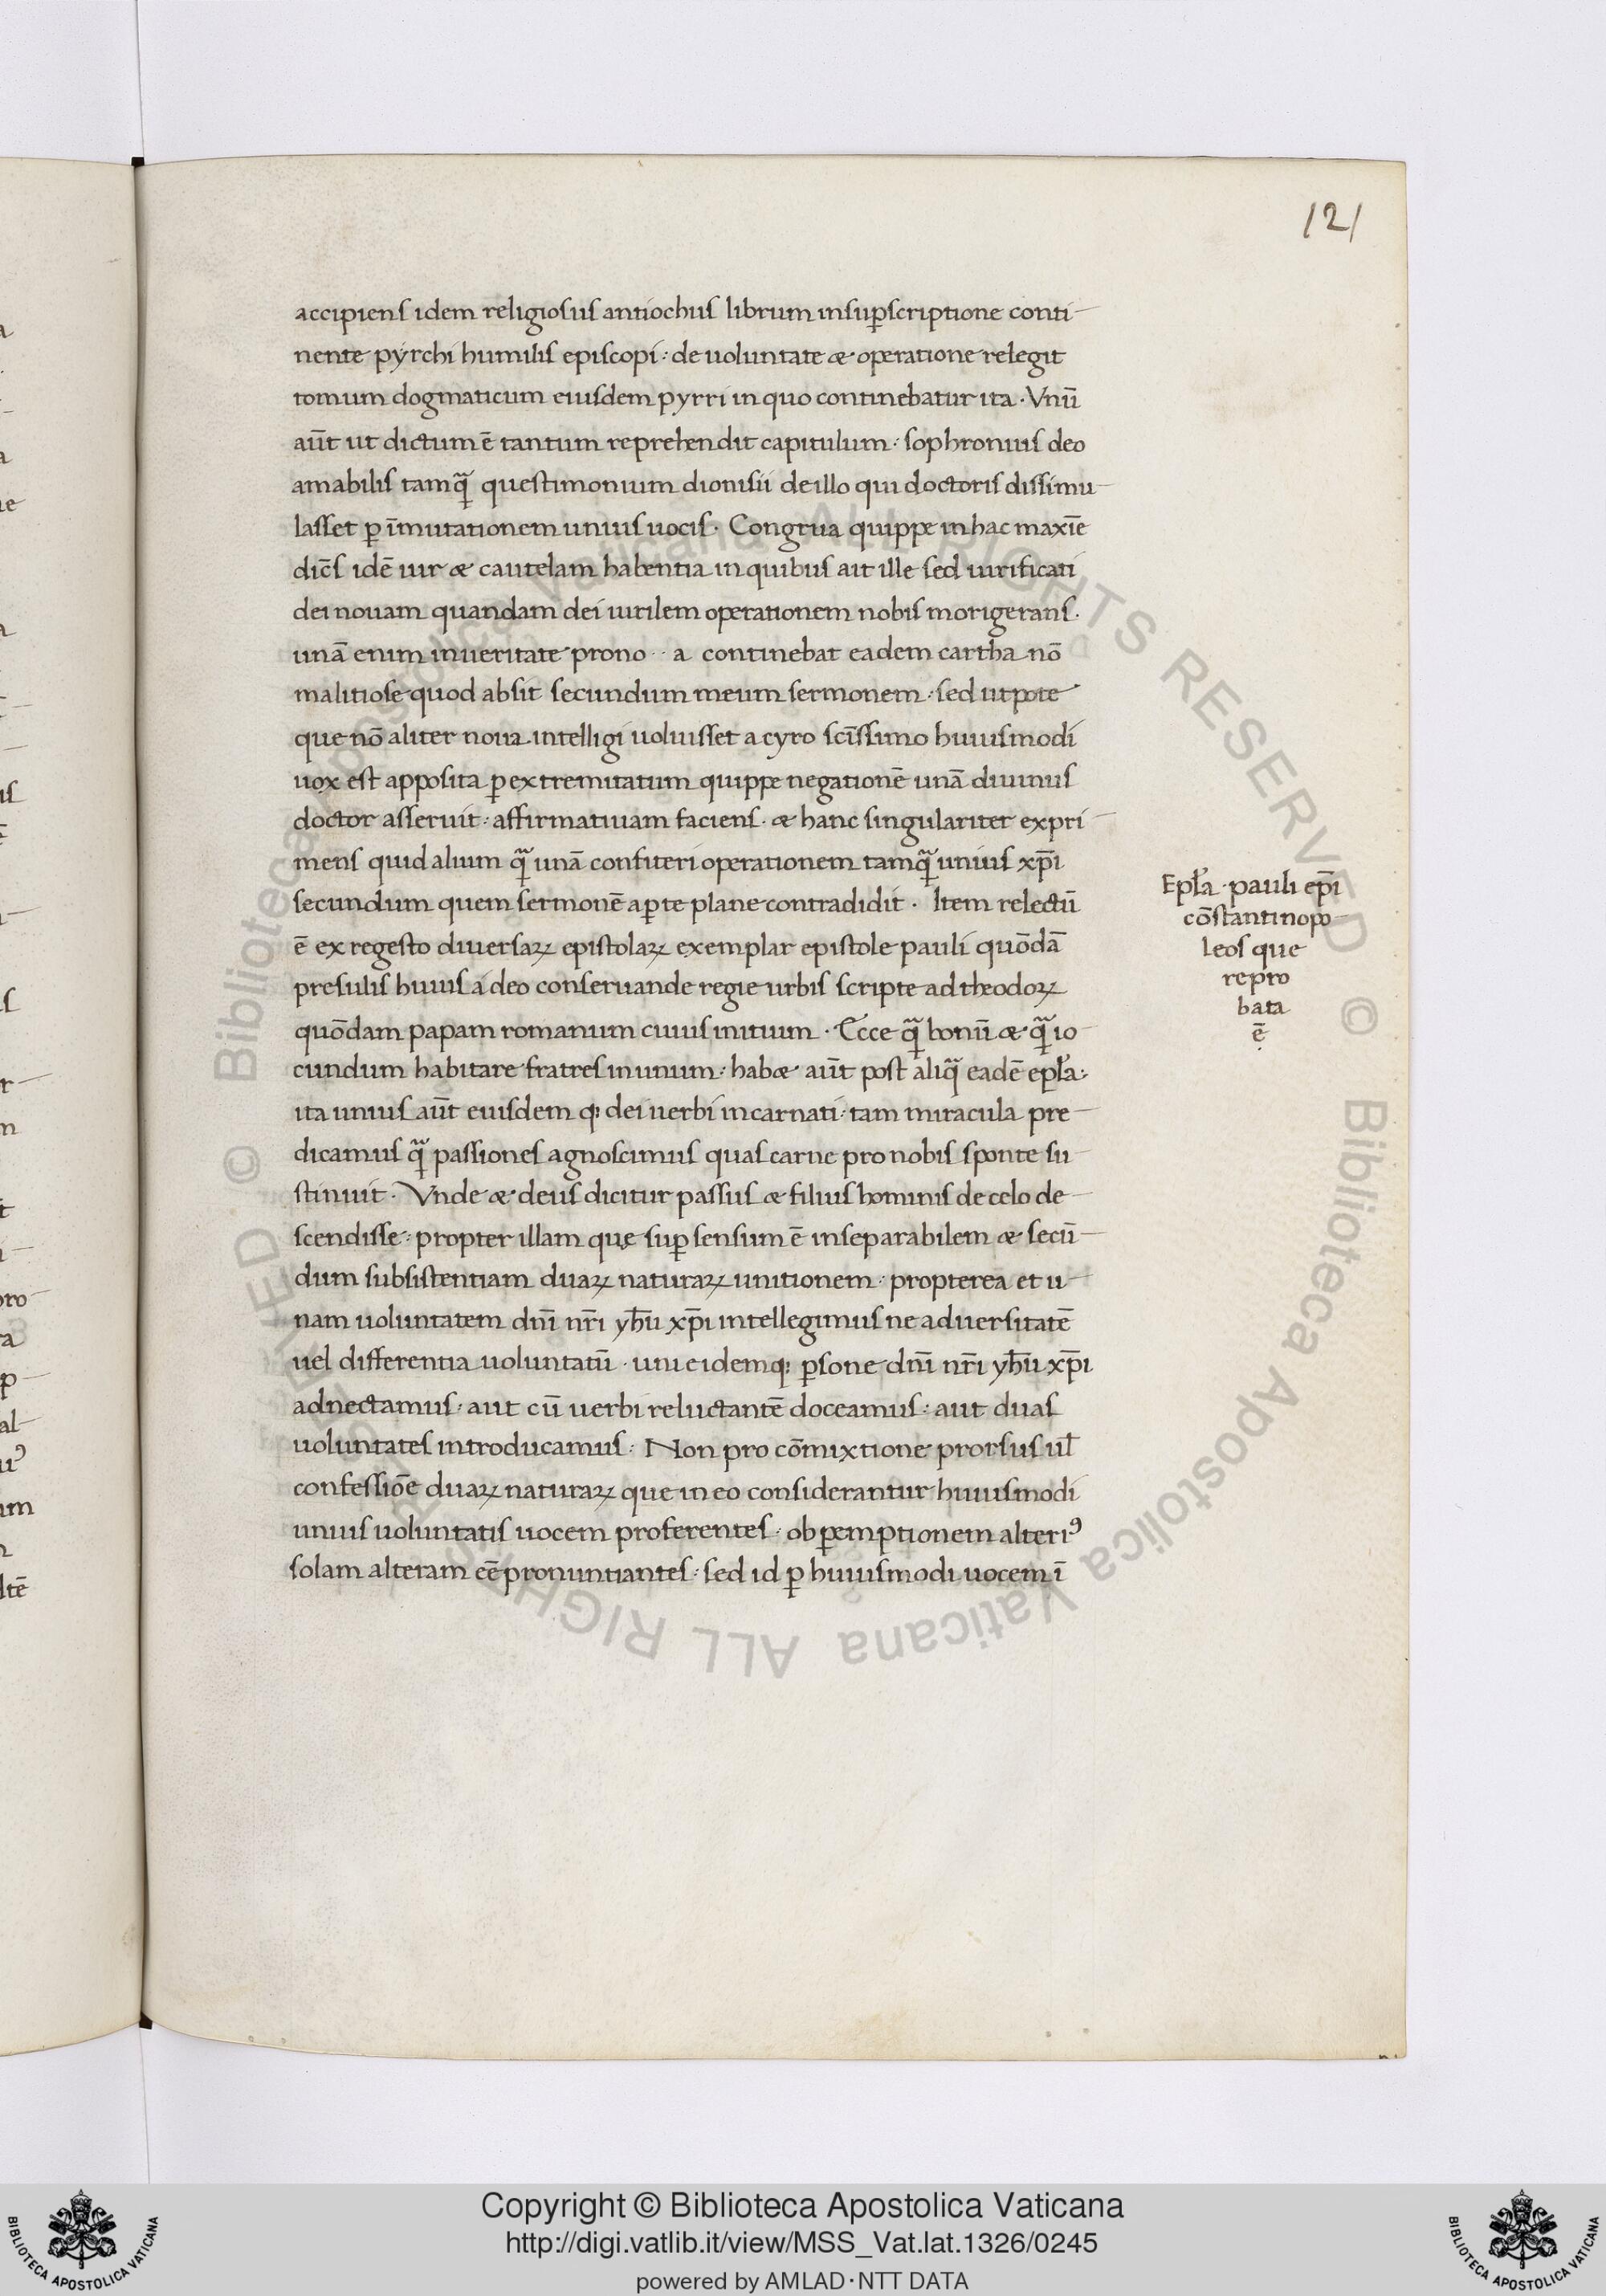 121
accipiens idem religiosus antiochus librum insup̱scriptione conti-
nente pyrchi humilis episcopi : de uoluntate & operatione relegit
tomum dogmaticum eiusdem pyrri in quo continebatur ita · Vnū
aūt ut dictum ē tantum reprehendit capitulum · sophronius deo
amabilis tamqͣ questimonium dionisii de illo qui doctoris dissimu-
lasset p̱ īmutationem unius uocis · Congrua quippe in hac maxīe
dic̄s idē uir & cautelam habentia in quibus ait ille sed uirificati
dei nouam quandam dei uirilem operationem nobis morigerans ·
unā enim in ueritate prono·· a continebat eadem cartha nō
malitiose quod absit secundum meum sermonem · sed utpote
que nō aliter noua intelligi uoluisset a cyro sc̄issimo huiusmodi
uox est apposita p̱ extremitatum quippe negationē unā diuinus
doctor asseruit : affirmatiuam faciens · & hanc singulariter expri-
mens quid alium qͣ unā confiteri operationem tamqͣ unius xp̄i
secundum quem sermonē ap̱te plane contradidit · Item relectū
ē ex regesto diuersaꝝ epistolaꝝ exemplar epistole pauli quōdā
presulis huius a deo conseruande regie urbis scripte ad theodoꝝ
quōdam papam romanum cuius initium · Ecce qͣ bonū & qͣ io-
cundum habitare fratres in unum : hab& aūt post aliqͣ eadē epl̄a :
ita unius aūt eiusdem q; dei uerbi incarnati : tam miracula pre-
dicamus qͣ passiones agnoscimus quas carne pro nobis sponte su-
stinuit · Vnde & deus dicitur passus & filius hominis de celo de-
scendisse : propter illam quę sup̱ sensum ē inseparabilem & secū-
dum subsistentiam duaꝝ naturaꝝ unitionem · propterea et u-
nam uoluntatem dn̄i nr̄i yh̄u xp̄i intellegimus ne aduersitatē
uel differentia uoluntatū · uni eidemq; p̱sone dn̄i nr̄i yh̄u xp̄i
adnectamus · aut cū uerbi reluctantē doceamus : aut duas
uoluntates introducamus : Non pro cōmixtione prorsus ul̄
confessiōe duaꝝ naturaꝝ que in eo considerantur huiusmodi
unius uoluntatis uocem proferentes · ob p̱emptionem alteri⁹
solam alteram eē pronuntiantes : sed id p̱ huiusmodi uocem ī
Epl̄a · pauli ep̄i
cōstantinopo-
leos que
repro
bata
ē
Copyright © Biblioteca Apostolica Vaticana
http://digi.vatlib.it/view/MSS_Vat.lat.1326/0245
powered by AMLAD·NTT DATA